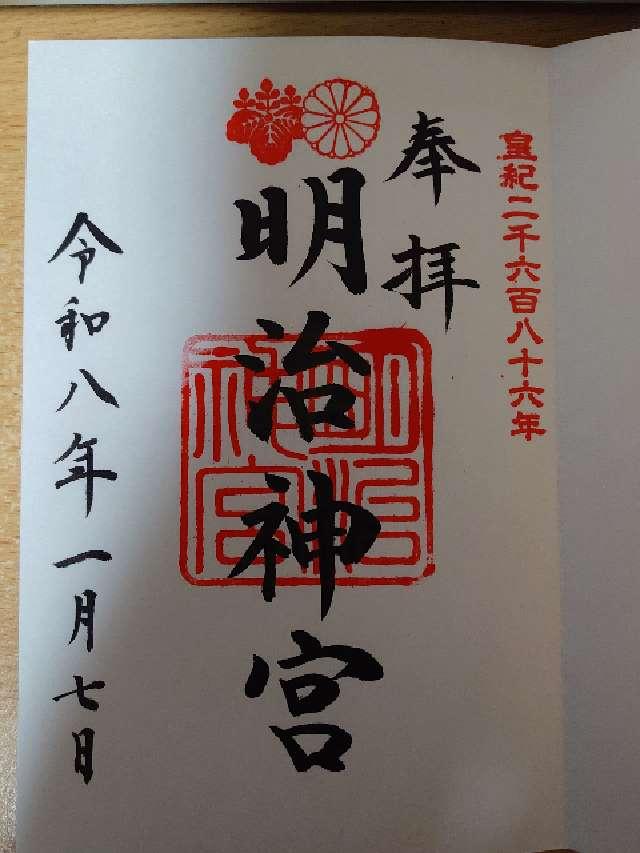 皇紀二千六百八十六年
奉拝
明治神宮
明治神宮
令和八年一月七日